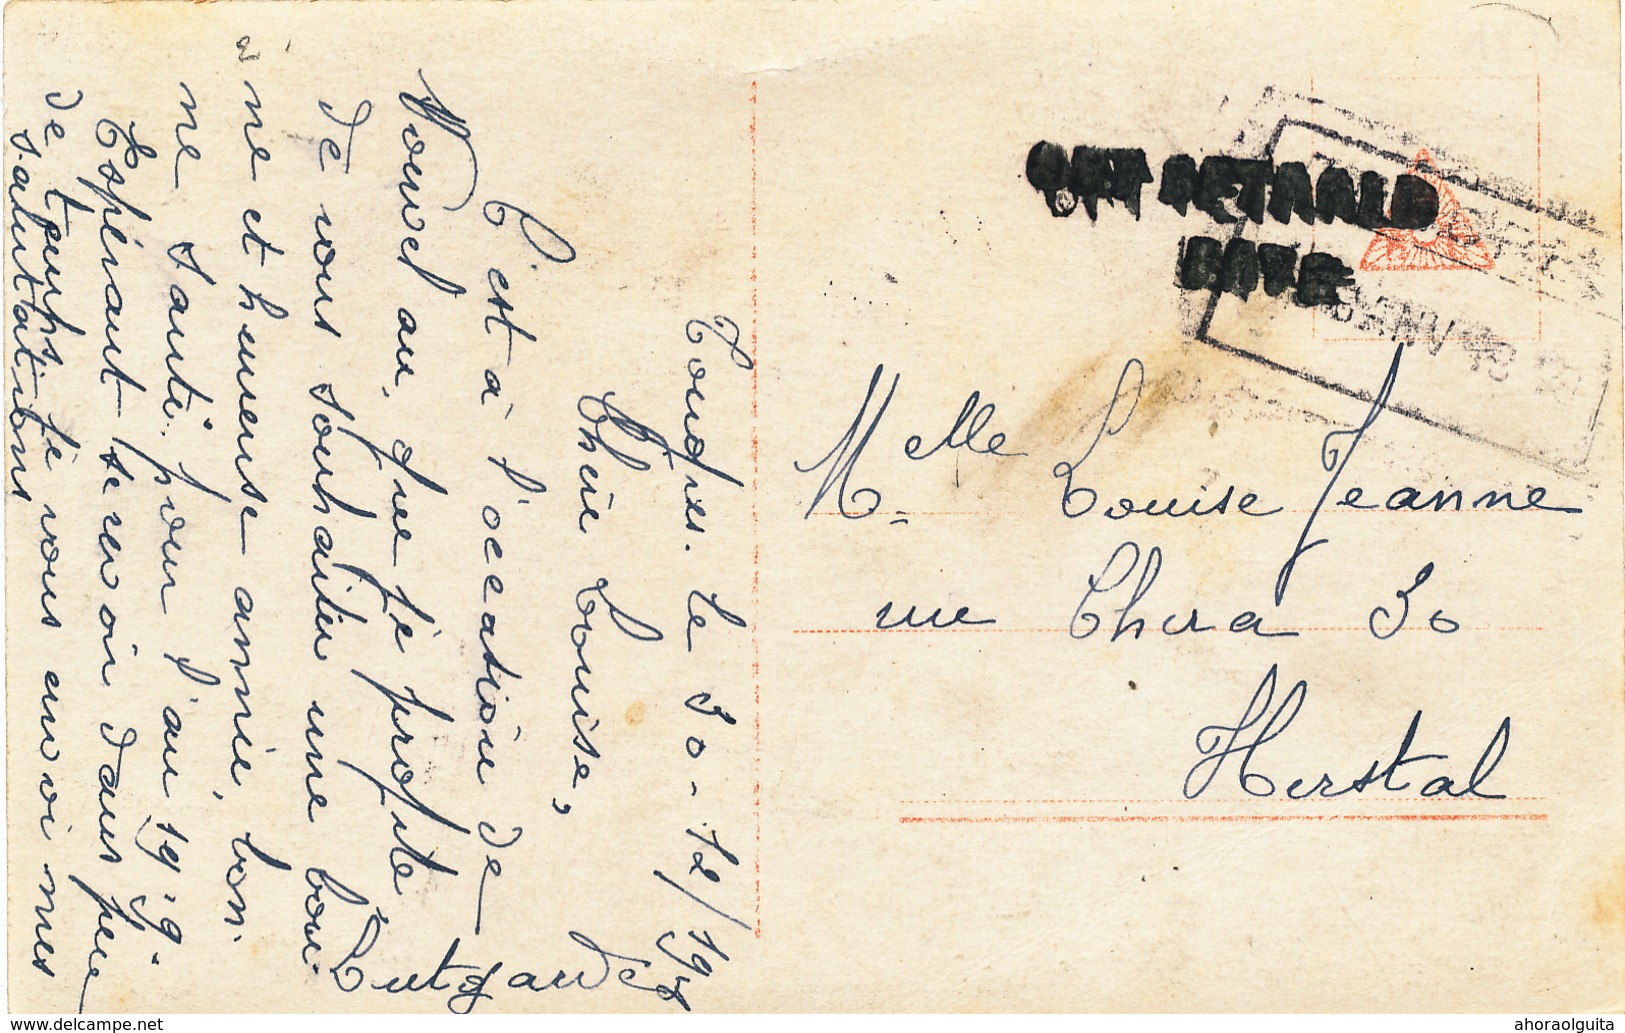 le 30-12/19
Chère Louise,
C'est à l'occation de
Nouvel an, que je profite
de vous souhaiter une bon
ne et heureuse année, bon
ne santé, pour l'an 1919.
Espérant se revoir dans peu
de temps je vous envoi mes
salutations
ONT BETAALD
Melle Louise Jeanne
rue 30
Herstal
www.delcampe.net
ahoraolguita